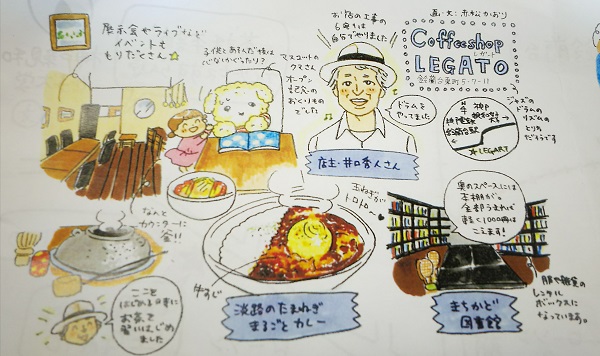 展示会やライブなど
イベントも
もりだくさん☆
子供とあそんだ後は
マスコットの
クマさん
オープン
記念の
おくりもの
でした
お店の工事の
6割は
自分でやりました!
ドラムを
やってました
店主・井口秀人さん
画・文:赤松かおり
Coffeeshop
LEGATO
レガート
鈴蘭台東町5-7-11
鈴蘭台駅
★LEGATO
ジャズの
ドラムの
リズムの
とりこ
だそうです
なんと
カウンターに
釜!!
ここを
はじめる時に
お茶を
習いはじめ
ました
玉ねぎが
トロトロ〜
牛すじ
淡路のたまねぎ
まるごとカレー
奥のスペースには
本棚が。
全部うまれば
軽く1000冊は
こえます!
まちかど
図書館
服や雑貨の
レンタル
ボックスに
なっています。